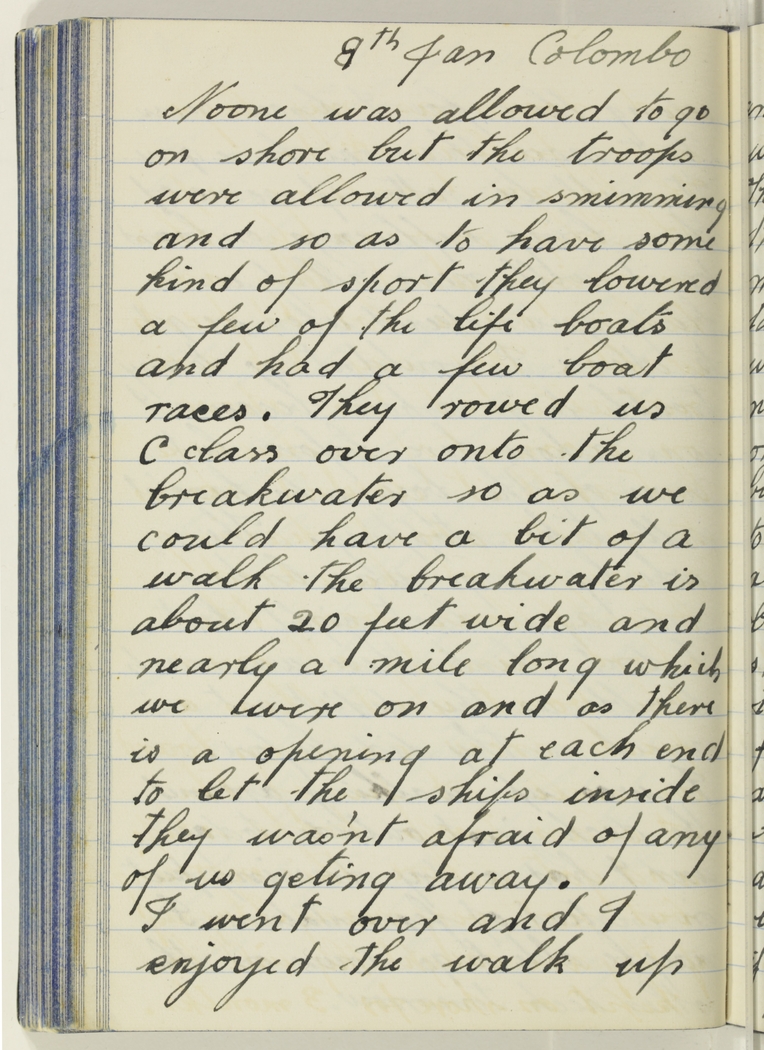 8th Jan Colombo
Noone was allowed to go
on shore but the troops
were allowed in swimming
and so as to have some
kind of sport they lowered
a few of the life boats
and had a few boat
races. They rowed us
C class over onto the
breakwater so as we
could have a bit of a
walk the breakwater is
about 20 feet wide and
nearly a mile long which
we were on and as there
is a opening at each end
to let the ships inside
they was'nt afraid of any
of us geting away.
I went over and I
enjoyed the walk up